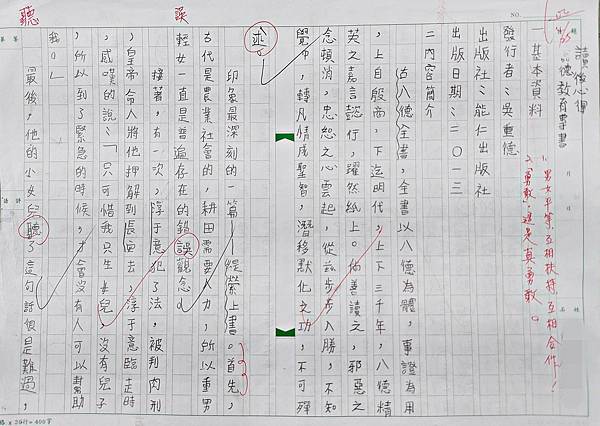 讀後心得
德教育專書
一 基本資料
發行者：吳重德
出版社：能仁出版社
出版日期：二〇一三
二 內容簡介
古八德全書，全書以八德為體，事證為用
，上自殷商，下迄明代，上下三千年，八德精
英之嘉言懿行，躍然紙上。倘善讀之，邪惡之
念頓消，忠恕之心雲起，從茲步步入勝，不知
覺中，轉凡情成聖智，潛移默化之功，不可殫
述
印象最深刻的一篇—緹縈上書。首先，
古代是農業社會的，耕田需要人力，所以重男
輕女一直是普遍存在的錯誤觀念。
接著，有一次，淳于意犯了法，被判肉刑
，皇帝命人將他押解到長安去，淳于意臨走時
，感嘆的說：「只可惜我只生女兒，沒有兒子
，所以到了緊急的時候，才會沒有人可以幫助
我。」
最後，他的小女兒聽了這句話很是難過，
1. 男女平等，互相扶持，互相合作！
2.「勇敢」這是真勇敢。
誤
聽
NO.
20行＝400字